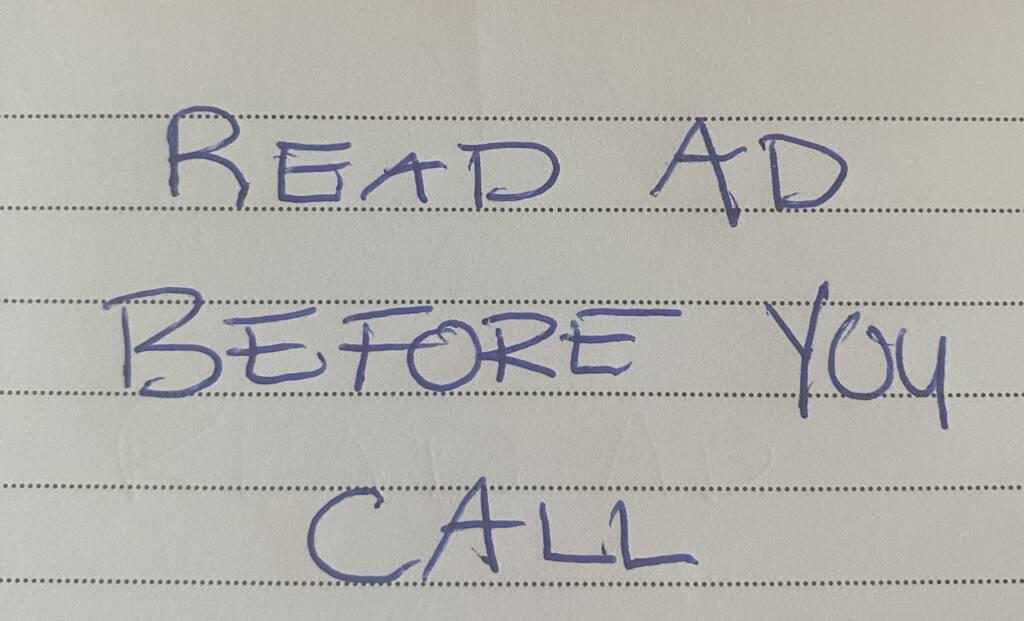 READ AD
BEFORE YOU
CALL